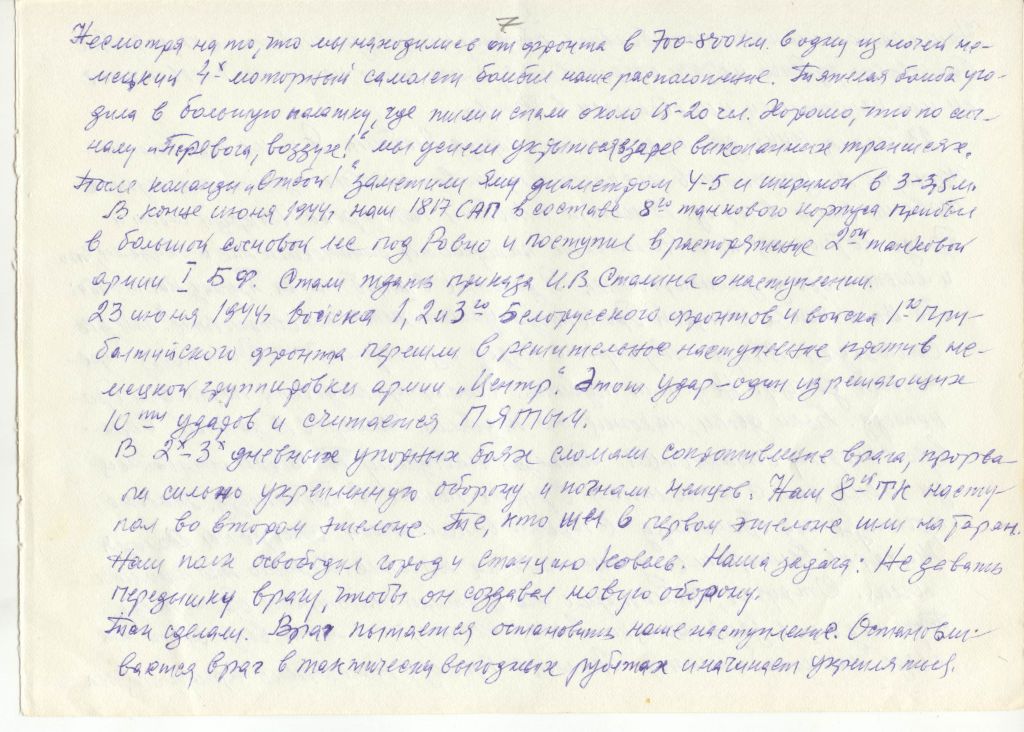 7
Несмотря на то, что мы находились от фронта в 700-800 км. в одну из ночей не-
мецкий 4х моторный самолет бомбил наше расположение. Тяжелая бомба уго-
дила в большую палатку, где жили и спали около 15-20 чл. Хорошо, что по сиг-
налу „Тревога, воздух!" мы успели укрыться в заранее выкопанных траншеях.
После команды „Отбой!" заметили яму диаметром 4-5 и шириной в 3-3,5 м.
В конце июня 1944г. наш 1817 САП в составе 8го танкового корпуса прибыл
в большой сосновой лес под Ровно и поступил в распоряжение 2ой танковой
армии I Б.Ф. Стали ждать приказа И.В. Сталина о наступлении.
23 июня 1944г. войска 1, 2 и 3го Белорусского фронтов и войска 1го При-
балтийского фронта перешли в решительное наступление против не-
мецкой группировки армии „Центр". Этот удар - один из решающих
10ти ударов и считается ПЯТЫМ.
В 2х-3х дневных упорных боях сломали сопротивление врага, прорва-
ли сильно укрепленную оборону и погнали немцев. Наш 8ой ТК насту-
пал во втором эшелоне. Те, кто шел в первом эшелоне шли на таран.
Наш полк освободил город и станцию Ковель. Наша задача: Не давать
передышку врагу, чтобы он создавал новую оборону.
Так сделали. Враг пытается остановить наше наступление. Останавли-
вается враг в тактически выгодных рубежах и начинает укрепляться.